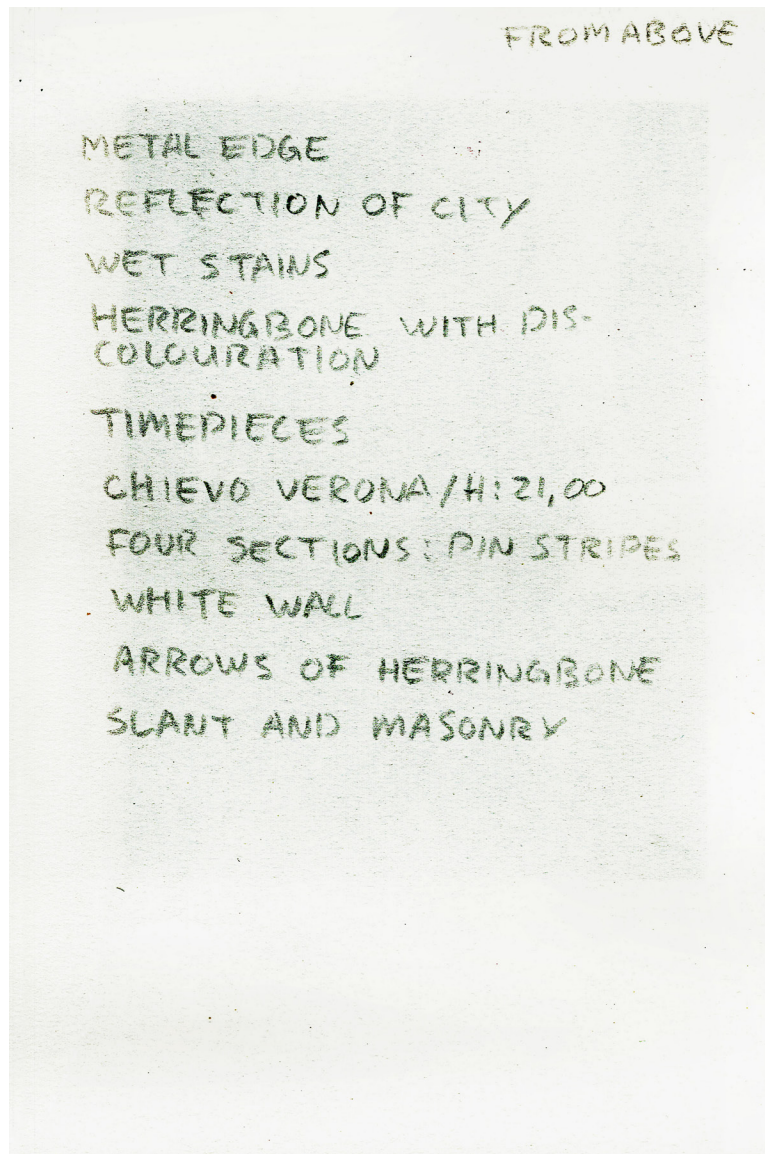 FROM ABOVE
METAL EDGE
REFLECTION OF CITY
WET STAINS
HERRINGBONE WITH DIS-
COLOURATION
TIMEPIECES
CHIEVO VERONA/H:21,00
FOUR SECTIONS: PIN STRIPES
WHITE WALL
ARROWS OF HERRINGBONE
SLANT AND MASONRY